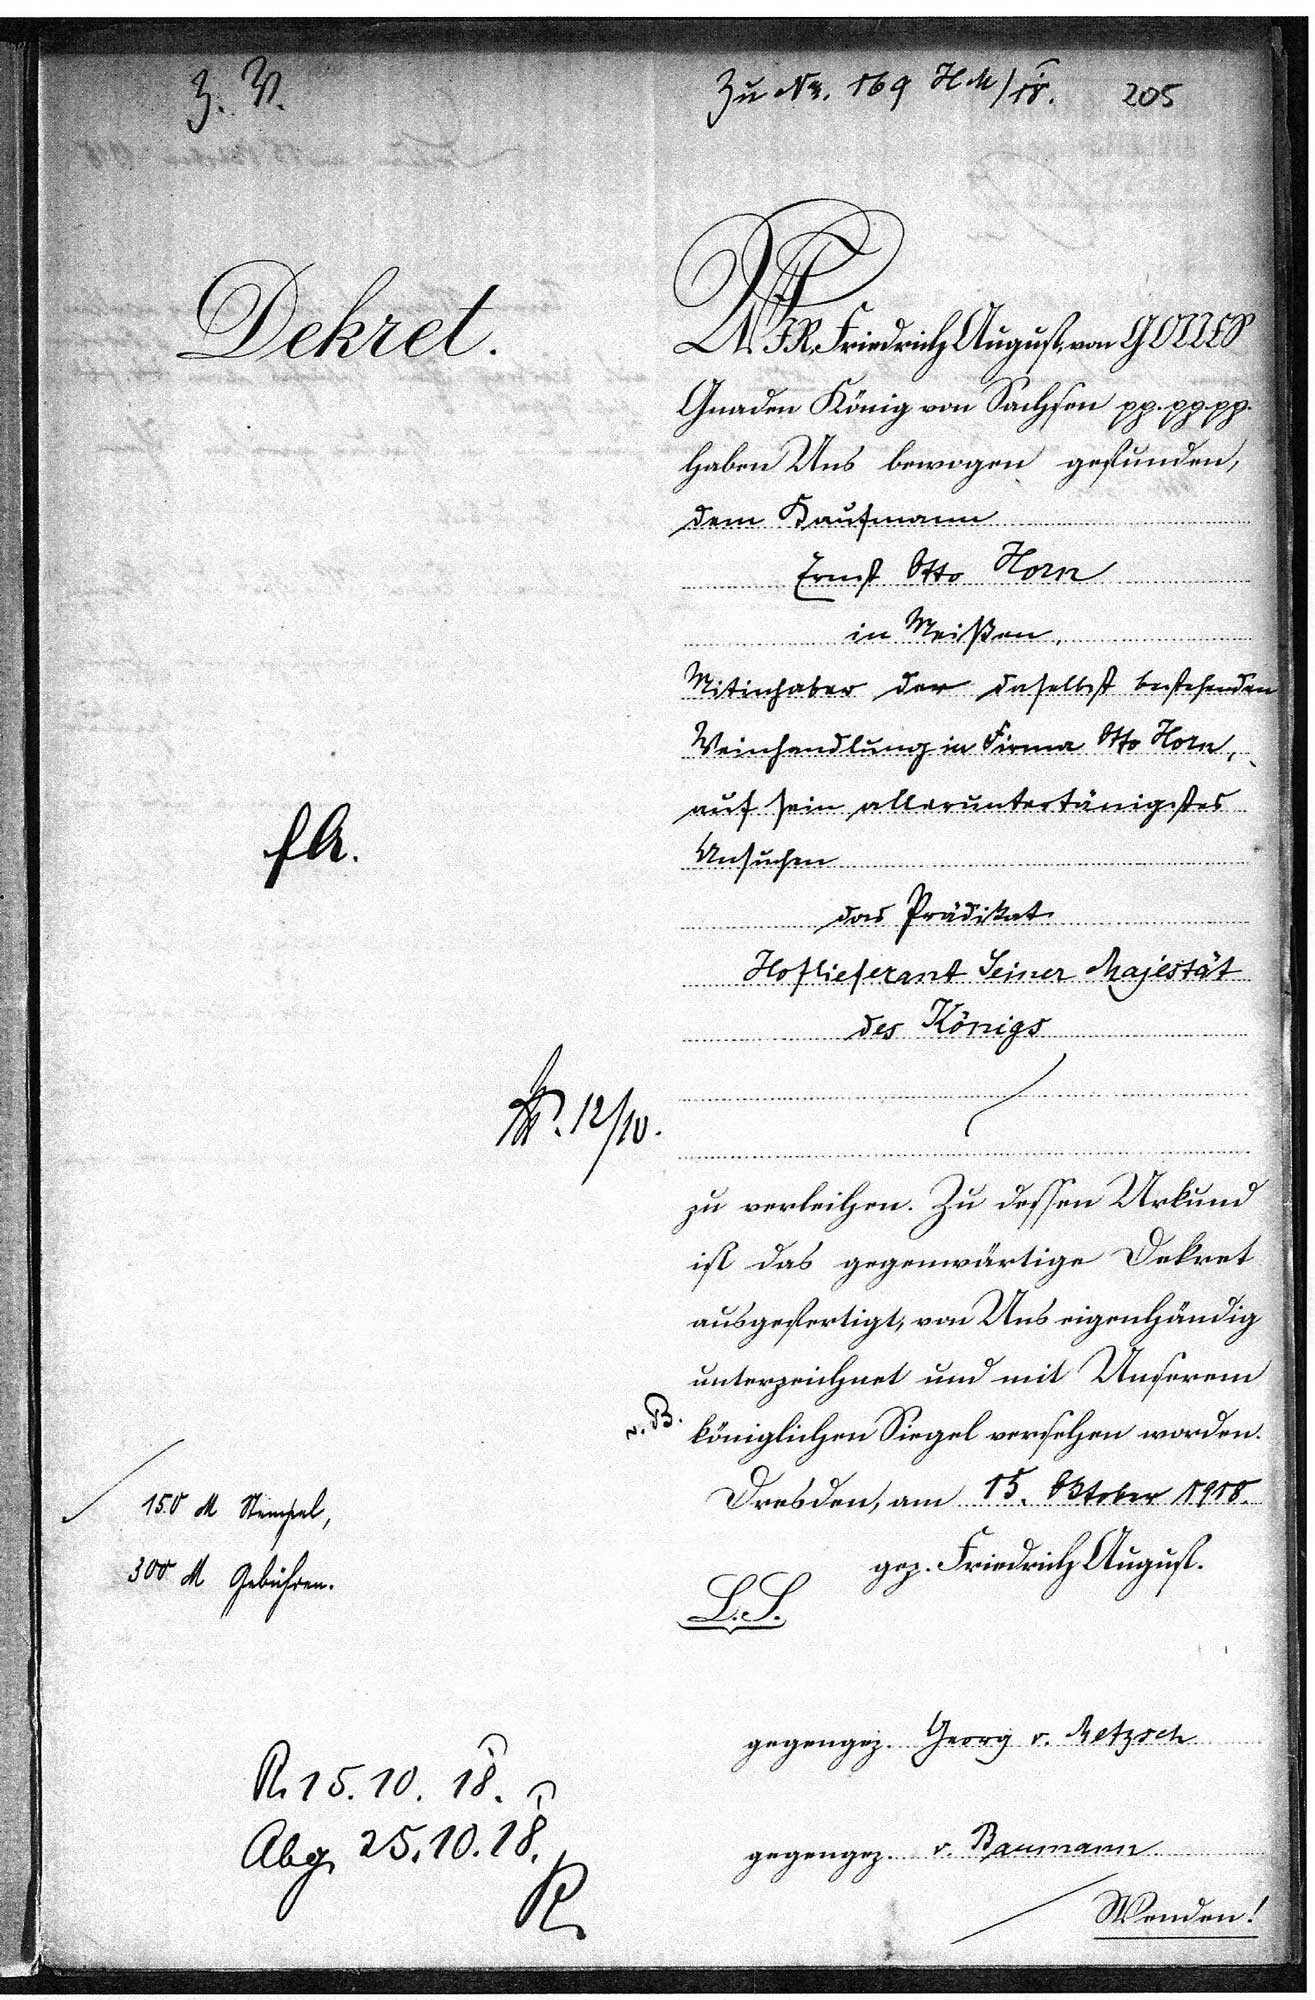 Z. V.
Zu No. 169 HM/18. 205
Dekret.
WIR, Friedrich August, von GOTTES
Gnaden König von Sachsen pp. pp. pp.
haben Uns bewogen gefunden,
dem Kaufmann
Ernst Otto Horn
in Meißen,
Mitinhaber der daselbst bestehenden
Weinhandlung in Firma Otto Horn,
auf sein alleruntertänigstes
Ansuchen
das Prädikat
Hoflieferant Seiner Majestät
des Königs
12/10.
zu verleihen. Zu dessen Urkund
ist das gegenwärtige Dekret
ausgefertigt, von Uns eigenhändig
unterzeichnet und mit Unserem
v. B.
königlichen Siegel versehen worden.
Dresden, am 15. Oktober 1918.
150 M Stempel,
300 M Gebühren.
gez. Friedrich August.
L.S.
gegengez. Georg v. Metzsch
R. 15. 10. 18.
Abg. 25. 10. 18.
gegengez. v. Baumann.
Wenden!